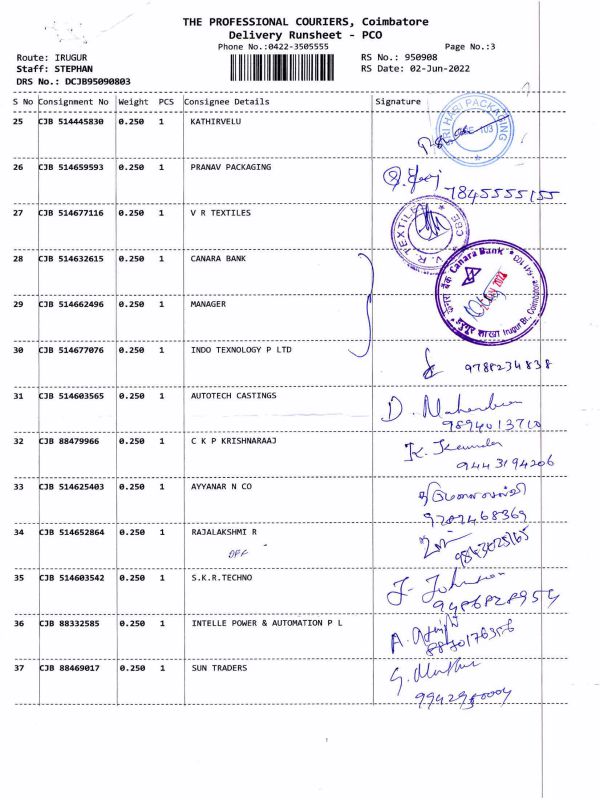 THE PROFESSIONAL COURIERS, Coimbatore
Delivery Runsheet - PCO
Phone No.:0422-3505555 Page No.:3
Route: IRUGUR RS No.: 950908
Staff: STEPHAN RS Date: 02-Jun-2022
DRS No.: DCJB95090803
S No Consignment No Weight PCS Consignee Details Signature
25 CJB 514445830 0.250 1 KATHIRVELU
SRI HARI PACKAGING
26 CJB 514659593 0.250 1 PRANAV PACKAGING
7845555155
27 CJB 514677116 0.250 1 V R TEXTILES
V. R. TEXTILES * CBE *
28 CJB 514632615 0.250 1 CANARA BANK
केनरा बैंक Canara Bank
Irugur Br., Coimbatore
29 CJB 514662496 0.250 1 MANAGER
30 CJB 514677076 0.250 1 INDO TEXNOLOGY P LTD
9788234838
31 CJB 514603565 0.250 1 AUTOTECH CASTINGS
9894013710
32 CJB 88479966 0.250 1 C K P KRISHNARAAJ
9443194206
33 CJB 514625403 0.250 1 AYYANAR N CO
34 CJB 514652864 0.250 1 RAJALAKSHMI R
35 CJB 514603542 0.250 1 S.K.R.TECHNO
J. Johnson
9486828954
36 CJB 88332585 0.250 1 INTELLE POWER & AUTOMATION P L
37 CJB 88469017 0.250 1 SUN TRADERS